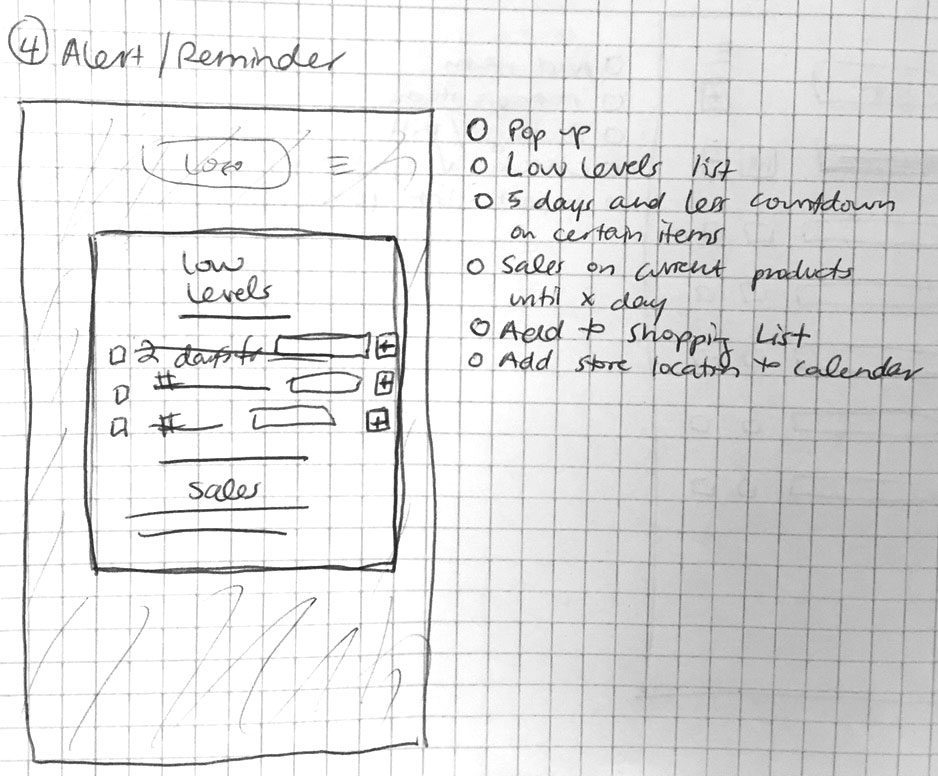 4 Alert / Reminder
Logo
Low
Levels
2 days fr
#
#
Sales
Pop up
Low Levels list
5 days and less countdown
on certain items
Sales on current products
until x day
Add to shopping List
Add store location to calendar